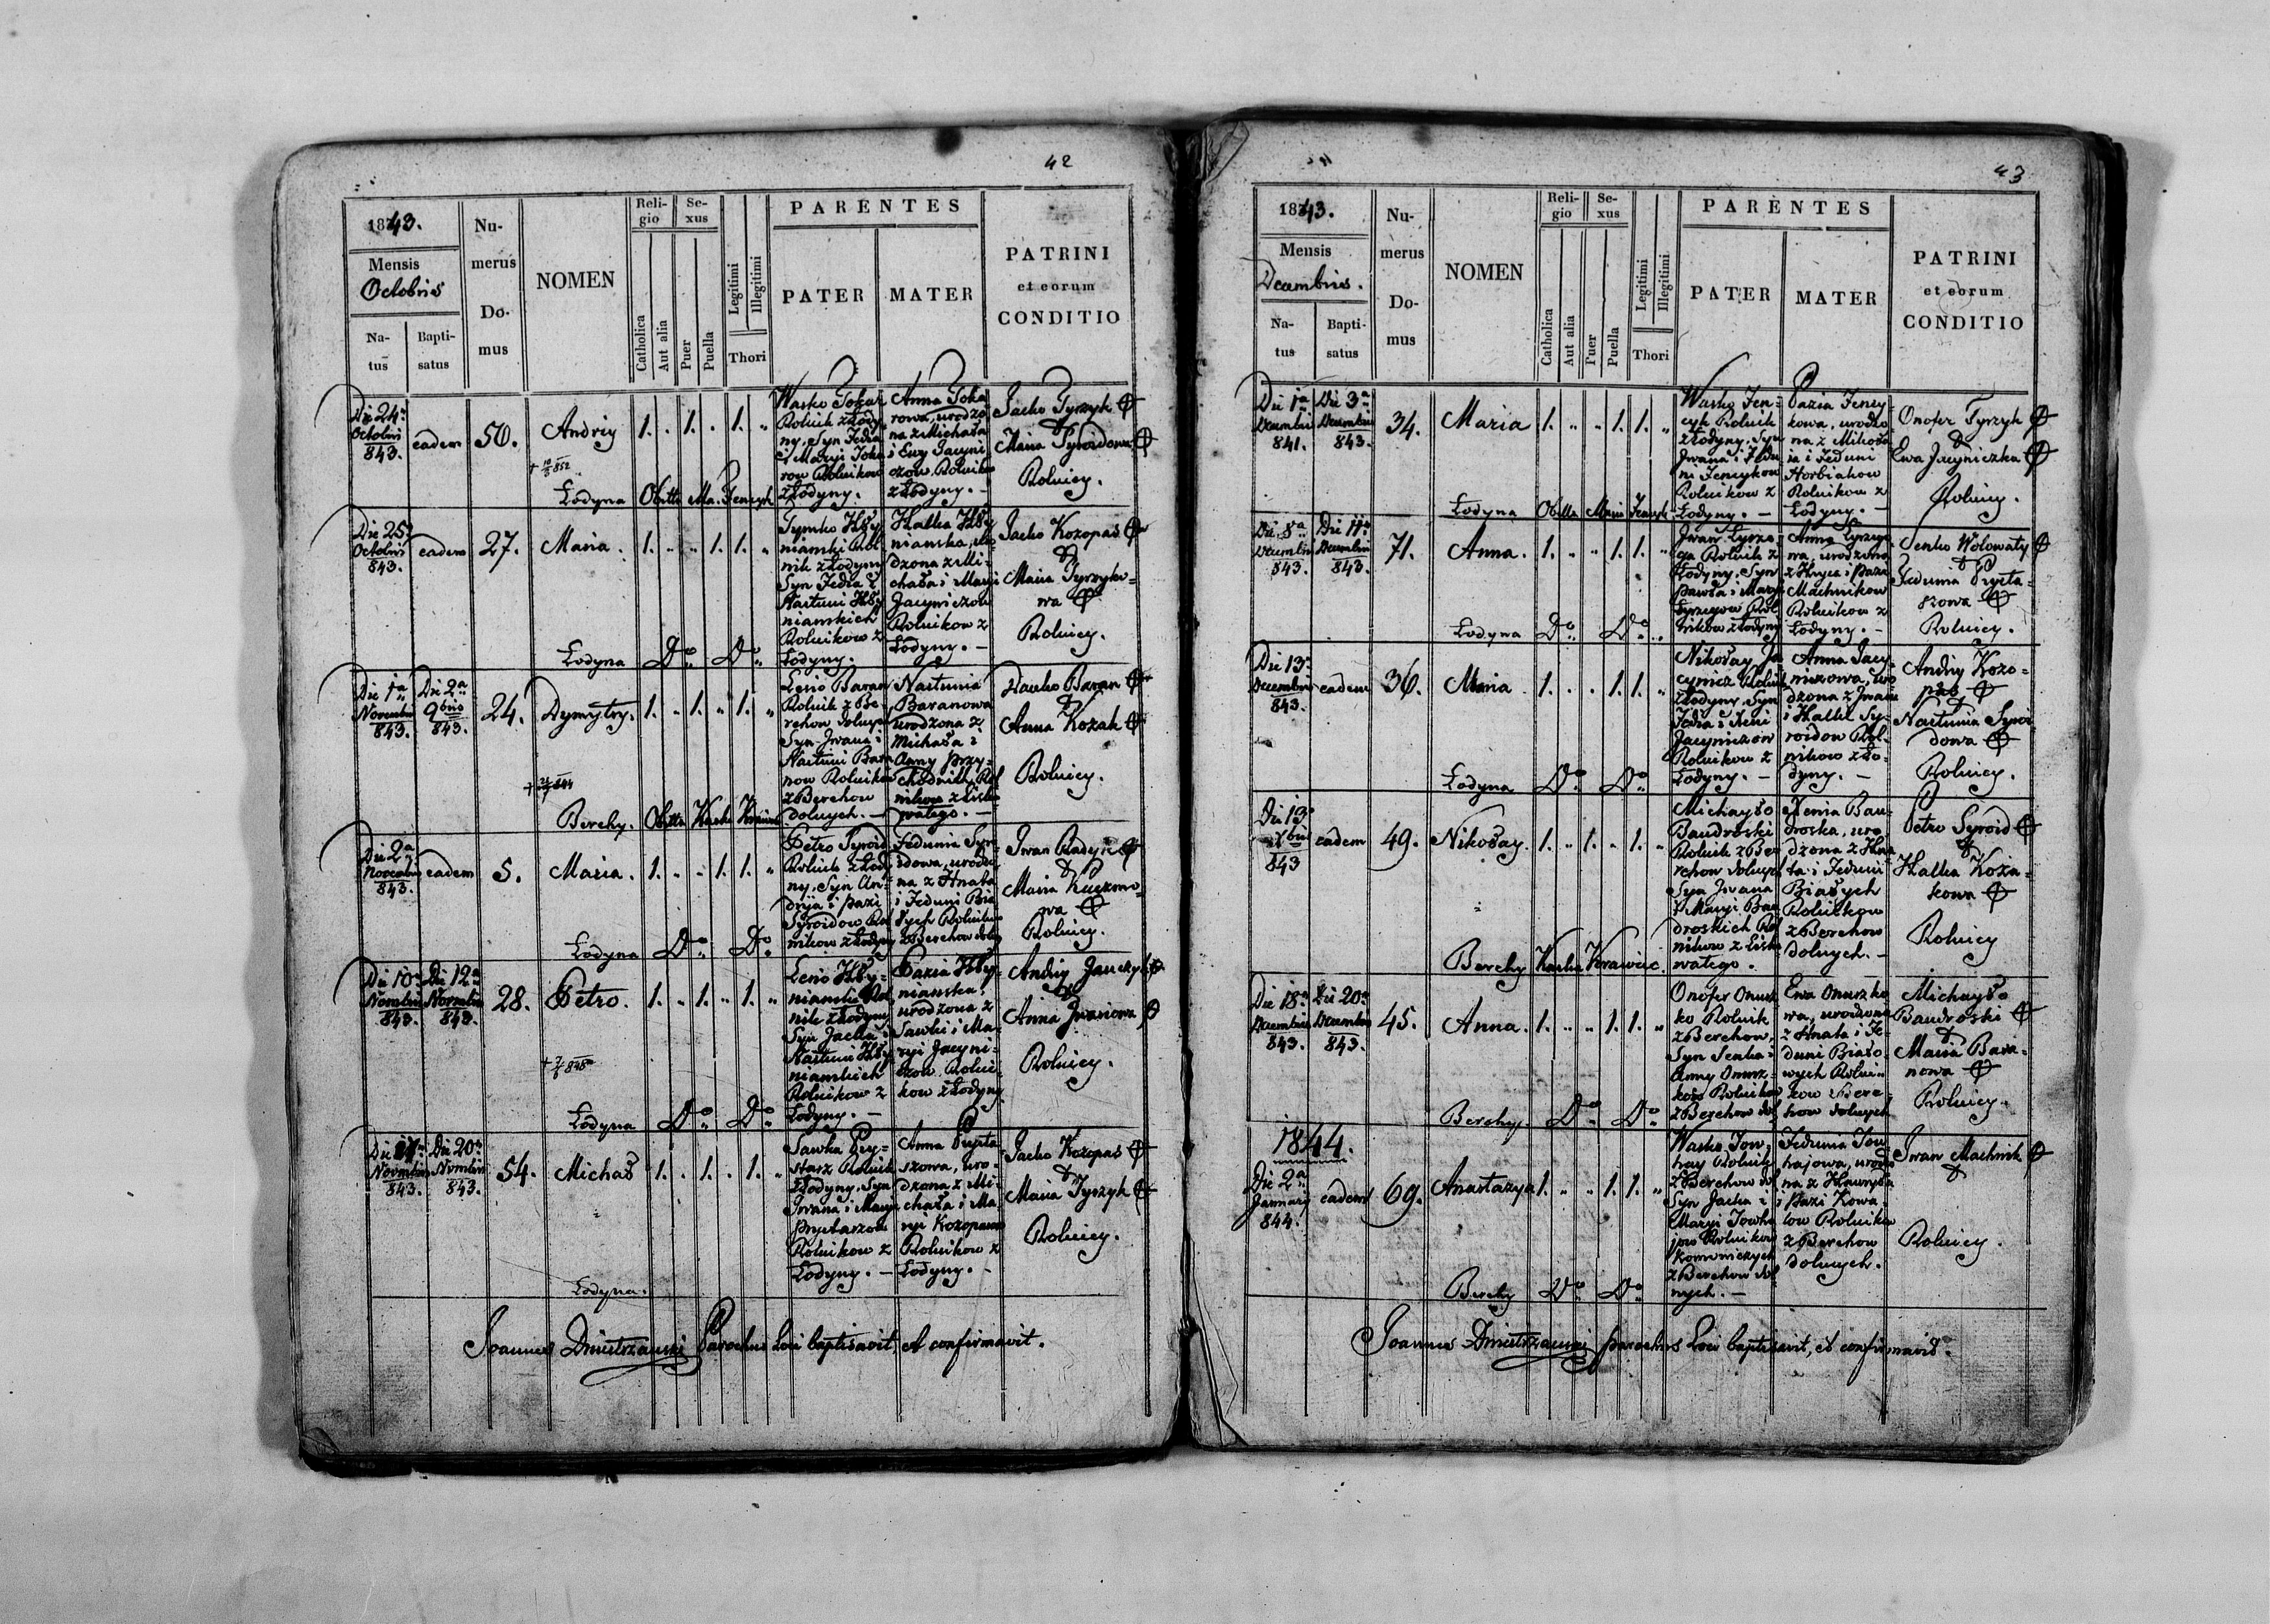 42
1843.
Mensis
Octobris
Natus
Baptisatus
Numerus Domus
NOMEN
Religio
Catholica
Aut alia
Sexus
Puer
Puella
Legitimi
Illegitimi
Thori
PARENTES
PATER
MATER
PATRINI
et eorum
CONDITIO
Die 24a
Octobris
843.
eadem
50.
Andriy
1. . 1. . 1. "
Łodyna
Wasko Tokar
Rolnik z Łody
ny, Syn Fedia
i Maryi Toka
row Rolnikow
z Łodyny.
Anna Toka
rowa, urodzo
na z Michała
i Ewy Jacyni
czow Rolnikow
z Łodyny. –
Jacko Tyrzyk
&
Maria Syroidowa
Rolnicy.
Die 25a
Octobris
843.
eadem
27.
Maria.
1. " " 1. 1. "
Łodyna Do Do
Tymko Hły
nianski Rol
nik z Łodyny
Syn Fedia i
Nastuni Hły
nianskich
Rolnikow z
Łodyny.
Halka Hły
nianska, uro
dzona z Mi
chała i Maryi
Jacyniczow
Rolnikow z
Łodyny. –
Jacko Kozopas
&
Maria Tyrzyko-
wa
Rolnicy.
Die 1a
Novembris
843.
Die 2a
9bris
843.
24.
Dymytry.
1. " 1. " 1. "
Berehy.
Lesio Baran
Rolnik z Be
rehow dolnych
Syn Iwana i
Nastuni Bara
now Rolnikow
z Berehow
dolnych. –
Nastunia
Baranowa
urodzona z
Michała i
Anny Przy-
Rolnikow
Baran
&
Anna Kozak
Rolnicy.
Die 2a
Novembris
843.
eadem
5.
Maria.
1. " " 1. 1. "
Łodyna Do Do
Petro Syroid
Rolnik z Łody
ny, Syn An-
drija i Pazi
Syroidow Rol
nikow z Łodyny
Fedunia Syro
idowa, urodzo
na z Hnata
i Feduni Bia
łych Rolnikow
z Berehow dolnych
Iwan Radyk
&
Maria Kuczmo-
wa
Rolnicy.
Die 10a
Novembris
843.
Die 12a
Novembris
843.
28.
Petro.
1. " 1. " 1. "
Łodyna Do Do
Lesio Hły-
nianski Rol
nik z Łodyny
Syn Jacka i
Nastuni Hły
nianskich
Rolnikow z
Łodyny. –
Pazia Hły-
nianska,
urodzona z
Sawki i Ma-
ryi Jacyni-
czow Rolni-
kow z Łodyny
Andriy Janczyk
&
Anna Iwaniowa
Rolnicy.
Die 17a
Novembris
843.
Die 20a
Novembris
843.
54.
Michał
1. . 1. . 1. "
Łodyna.
Sawka Pry-
starz Rolnik
z Łodyny, Syn
Iwana i Maryi
Prystarzow
Rolnikow z
Łodyny. –
Anna Prysta
rzowa, uro-
dzona z Mi-
chała i Ma
ryi Kozopasow
Rolnikow z
Łodyny. –
Jacko Kozopas
&
Maria Tyrzyk
Rolnicy.
Joannes Dniestrzanski Parochus Loci baptisavit, et confirmavit.
43
1843.
Mensis
Decembris.
Natus
Baptisatus
Numerus Domus
NOMEN
Religio
Catholica
Aut alia
Sexus
Puer
Puella
Legitimi
Illegitimi
Thori
PARENTES
PATER
MATER
PATRINI
et eorum
CONDITIO
Die 1a
Decembris
841.
Die 3a
Decembris
843.
34.
Maria
1. " " 1. 1. "
Łodyna
Wasko Fen-
cyk Rolnik
z Łodyny, Syn
Iwana i Fedu
ni Fencykow
Rolnikow z
Łodyny. –
Pazia Fency-
kowa, urodzo
na z Mikoła
ia i Feduni
Horbiakow
Rolnikow z
Łodyny. –
Onofer Tyrzyk
Ewa Jacyniczka
Rolnicy.
Die 8a
Decembris
843.
Die 11a
Decembris
843.
71.
Anna.
1. " " 1. 1. "
Łodyna Do Do
Rolnik z
Łodyny, Syn
Pawła i Maryi
Machnikow
Rolnikow z
Łodyny. –
Senko Wołowaty
&
Fedunia Prysta-
rzowa
Rolnicy.
Die 13a
Decembris
843.
eadem
36.
Maria
1. . . 1. 1. "
Łodyna Do Do
Nikołay Ja
cynicz Rolnik
z Łodyny, Syn
Jacyniczow
Rolnikow z
Łodyny. –
Anna Jacy-
niczowa, uro
dzona z Iwana
i Halki Sy-
roidow Rol-
nikow z Ło-
dyny. –
Andriy Kozo-
pas
Nastunia Syroi
dowa
Rolnicy.
Die 13a
Xbris
843
eadem
49.
Nikołay.
1. " 1. " 1. "
Berehy Kaska Krawiec.
Michayło
Baudroski
Rolnik z Be
rehow dolnych
Syn Iwana
i Maryi Bau
droskich Rol
nikow z Lisko
watego.
Xenia Bau-
droska, uro
dzona z Hna
ta i Feduni
Białych
Rolnikow
z Berehow
dolnych. –
Petro Syroid
&
Halka Koza-
kowa
Rolnicy
Die 18a
Decembris
843.
Die 20a
Decembris
843.
45.
Anna.
1. " " 1. 1. "
Berehy. Do Do
Onofer Onusz
ko Rolnik
z Berehow,
Syn Senka i
Anny Onusz-
kow Rolnikow
z Berehow dol
Ewa Onuszko
wa, urodzona
z Hnata i Fe-
duni Biało-
wych Rolni-
kow z Bere-
how dolnych
Michayło
Baudroski
&
Maria Bara-
nowa
Rolnicy.
1844.
Die 2a
Januarij
844.
eadem
69.
Anastazya
1. " " 1. 1. "
Berehy Do Do
Rolnik
z Berehow
Syn Jacka i
Maryi
Rolnikow
Komorniczych
z Berehow dol
nych. –
Fedunia
urodzo
na z Hawryła
i Pazi Kowa
low Rolnikow
z Berehow
dolnych.
Iwan Machnik
&
Rolnicy.
Joannes Dniestrzanski Parochus Loci baptisavit, et confirmavit.